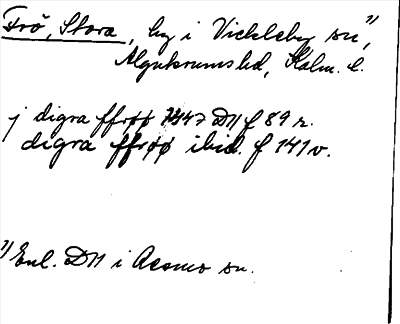 Frö, Stora, by i Vickleby sn 1),
Algutsrums hd, Kalm. l.
j digra ffrøø 1447 D11 f 89 r.
digra ffrøø ibid. f 141 v.
1) Enl. D11 i Resmo sn.